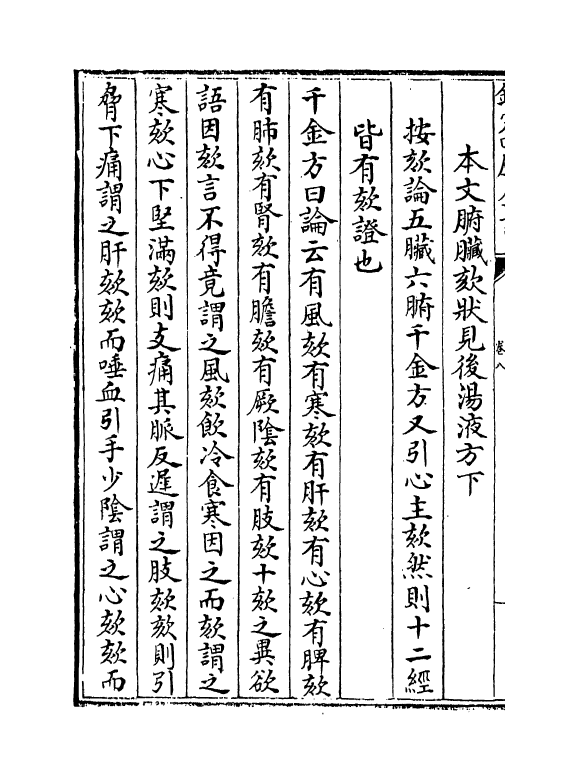 本文腑臟欬狀見後湯液方下
按欬論五臟六腑千金方又引心主欬然則十二經
皆有欬證也
千金方曰論云有風欬有寒欬有肝欬有心欬有脾欬
有肺欬有腎欬有膽欬有厥陰欬有肢欬十欬之異欲
語因欬言不得竟謂之風欬飲冷食寒因之而欬謂之
寒欬心下堅滿欬則支痛其脈反遲謂之肢欬欬則引
脅下痛謂之肝欬欬而唾血引手少陰謂之心欬欬而
卷八